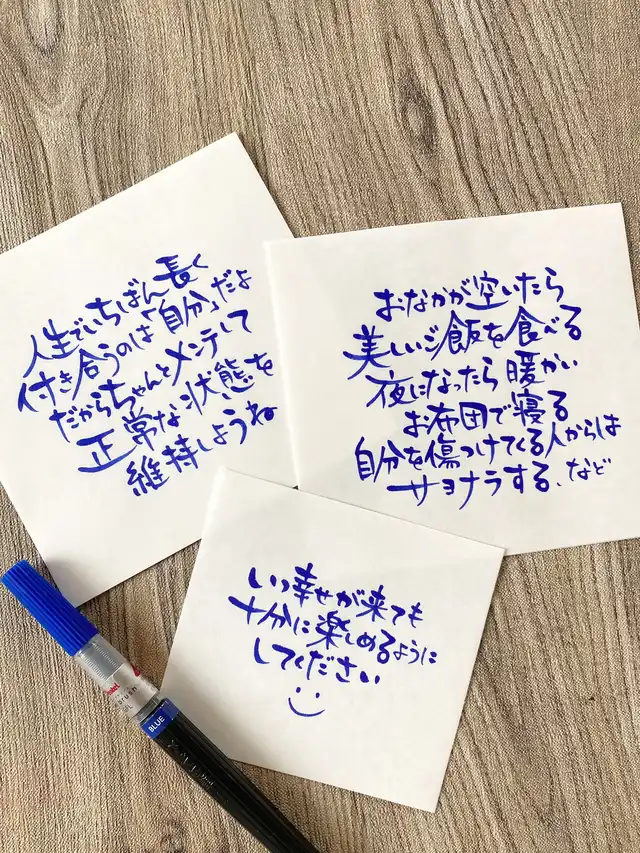 人生でいちばん長く
付き合うのは「自分」だよ
だからちゃんとメンテして
正常な状態を
維持しようね
おなかが空いたら
美しいご飯を食べる
夜になったら暖かい
お布団で寝る
自分を傷つけてくる人からは
サヨナラする、など
いつ幸せが来ても
十分に楽しめるように
してください
BLUE